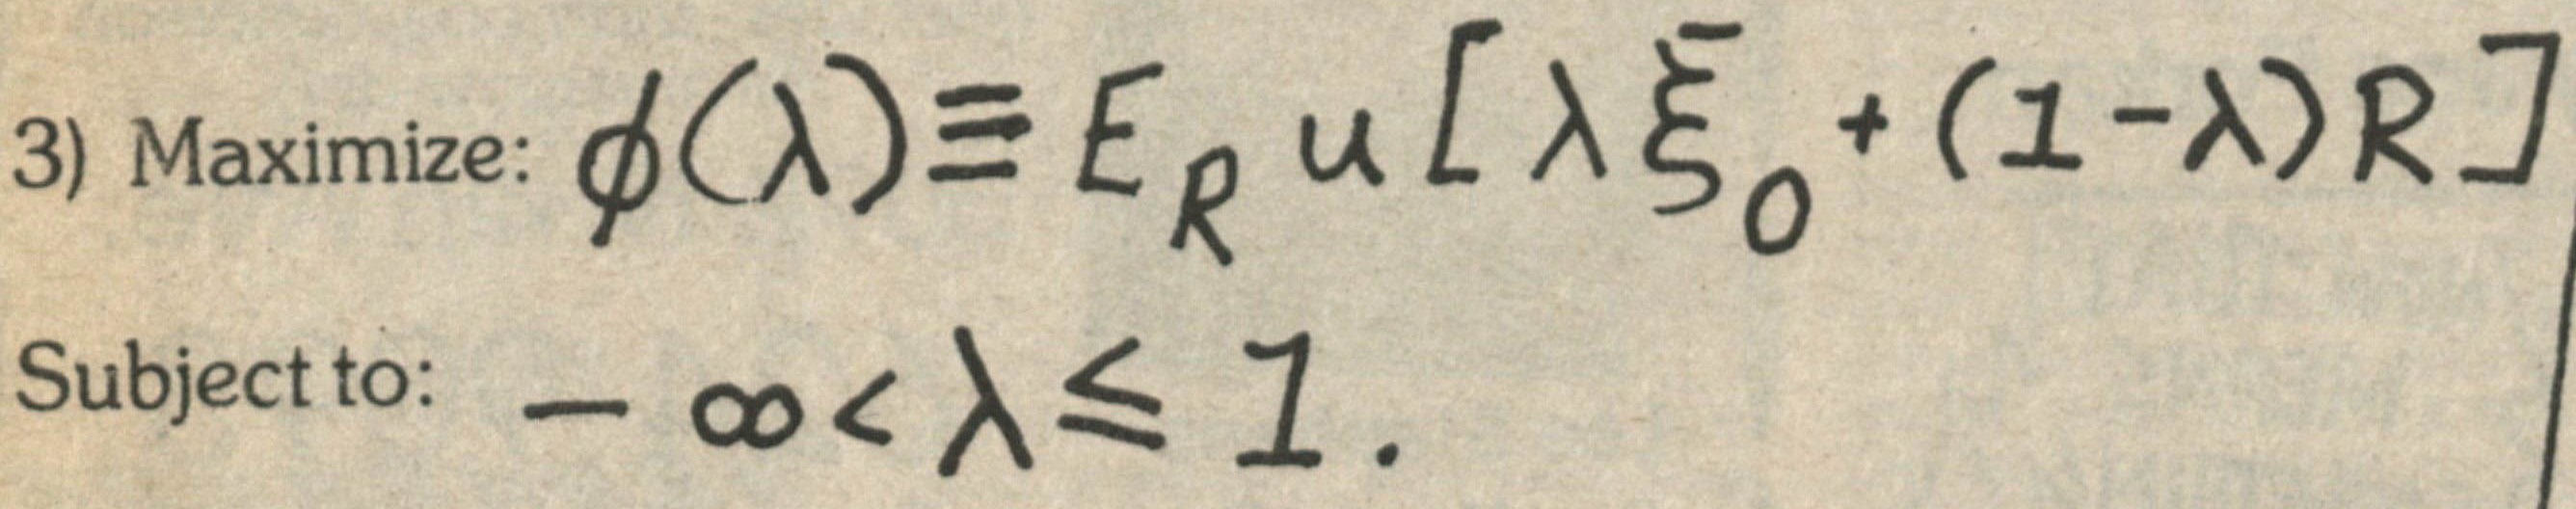 3) Maximize: ϕ(λ) ≡ E_R u[λ ξ̄_0 + (1-λ)R]
Subject to: -∞ < λ ≦ 1.